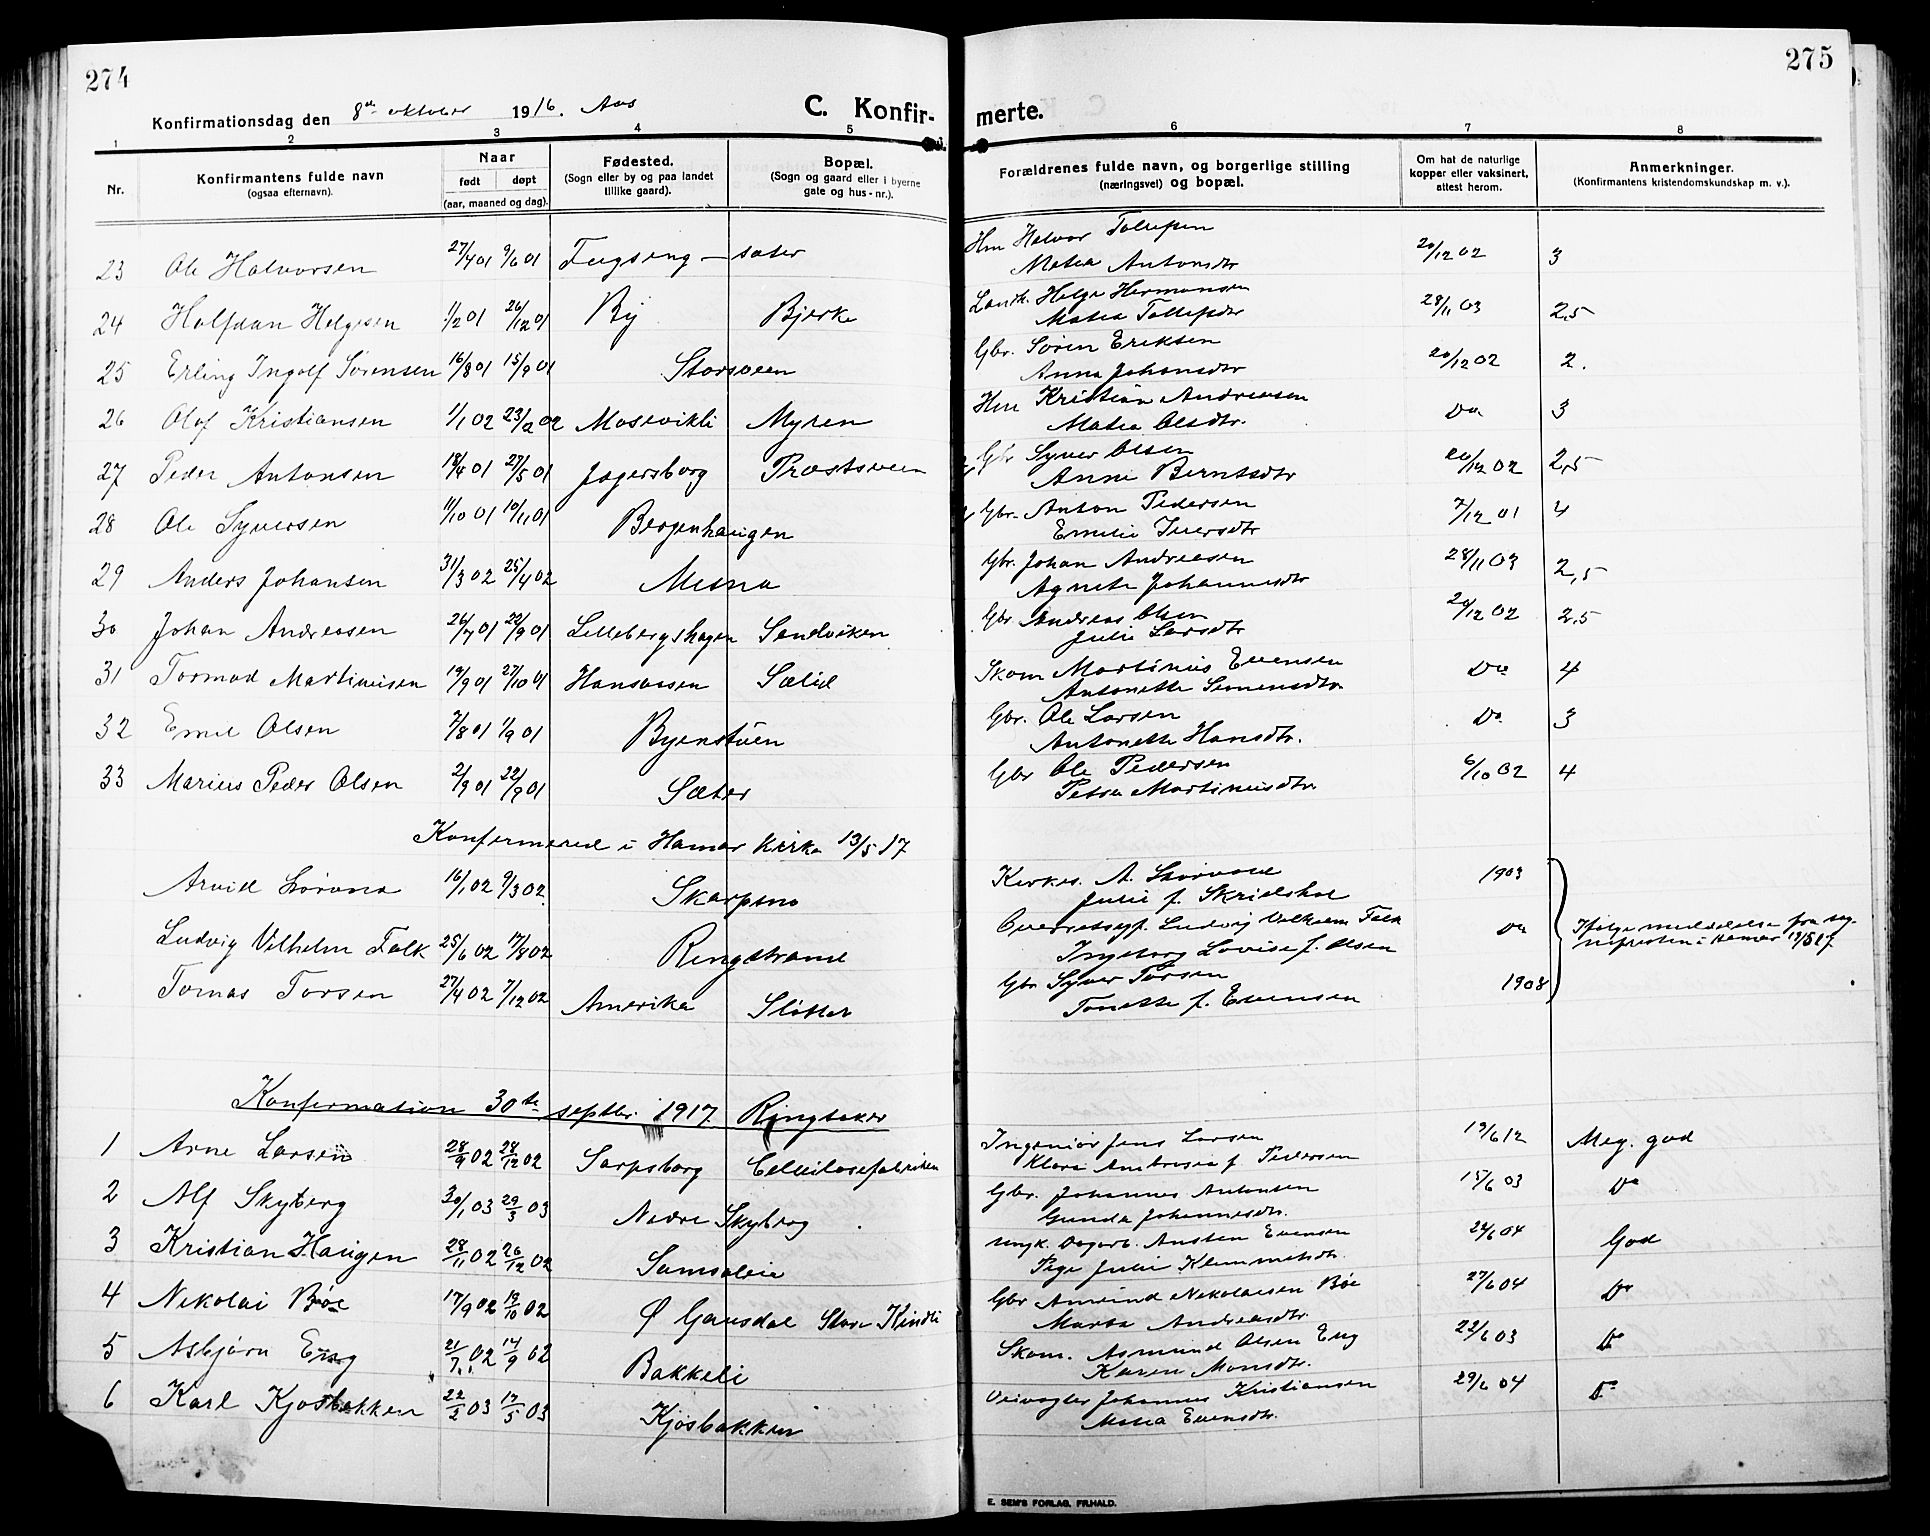 274
Konfirmationsdag den 8de oktober 1916. Aas C. Konfir-
1 2 3 4 5
Nr. Konfirmantens fulde navn (ogsaa efternavn). Naar født døpt (aar, maaned og dag). Fødested. (Sogn eller by og paa landet tillike gaard). Bopæl. (Sogn og gaard eller i byerne gate og hus-nr.).
23 Ole Halvorsen 27/4 01 9/6 01 Fugseng — sæter
24 Halfdan Helgesen 1/2 01 26/12 01 By Bjerke
25 Erling Ingolf Sørensen 16/8 01 15/9 01 Storsveen
26 Olaf Kristiansen 1/1 02 23/2 02 Mosevikli Myren
27 Peder Antonsen 18/4 01 27/5 01 Jagersborg Præstsveen
28 Ole Syversen 11/10 01 10/11 01 Bergenhaugen
29 Anders Johansen 31/3 02 25/4 02 Mesna
30 Johan Andreasen 26/7 01 22/9 01 Lillebergshagen Sandviken
31 Tormod Martinusen 19/9 01 27/10 01 Hansaasen Sælid
32 Emil Olsen 7/8 01 1/9 01 Byenstuen
33 Marius Peder Olsen 2/9 01 22/9 01 Sæter
Konfirmered i Hamar kirke 13/5 17
Arvid Lørvna 16/1 02 9/3 02 Skarpsno
Ludvig Vilhelm Falk 25/6 02 17/8 02 Ringstrand
Tomas Torsen 27/4 02 7/12 02 Amerika Slåtter
Konfirmation 30te septbr. 1917. Ringsaker
1 Arne Larsen 28/9 02 28/12 02 Sarpsborg Cellulosefabriken
2 Alf Skyberg 30/1 03 29/3 03 Nedre Skyberg
3 Kristian Haugen 28/11 02 26/12 02 Samsaleie
4 Nikolai Bøe 17/9 02 19/10 02 Ø Gausdal Store Kindli
5 Asbjørn Eng 21/7 02 14/9 02 Bakkeli
6 Karl Kjosbakken 22/2 03 17/5 03 Kjosbakken
275
merte.
6 7 8
Forældrenes fulde navn, og borgerlige stilling (næringsvei) og bopæl. Om hat de naturlige kopper eller vaksinert, attest herom. Anmerkninger. (Konfirmantens kristendomskundskap m. v.).
Hm Halvor Tollefsen 20/12 02 3
Matea Antonsdtr
Landh. Helge Hermansen 28/11 03 2,5
Matea Tollefsdr
Gbr. Søren Eriksen 20/12 02 2.
Anna Johansdtr
Hm Kristian Andreasen Do 3
Matea Olsdtr.
Gbr Syver Olsen 20/12 02 2,5
Anne Berntsdtr
Gbr. Anton Pedersen 7/12 01 4
Emilie Iversdtr
Gbr. Johan Andreasen 28/11 03 2,5
Agnete Johannesdtr
Gbr Andreas Olsen 20/12 02 2,5
Julie Larsdtr
Skom Martinus Evensen Do 4
Antonette Simensdtr.
Gbr. Ole Larsen Do. 3
Antonette Hansdtr.
Gbr Ole Pedersen 6/10 02 4
Petra Martinusdtr
Kirkes. A. 1903
Julie f. Skrielshol
Ludvig Vilhelm Falk Do
Ingeborg Lovise f. Olsen
Ifølge meddelelse fra
i Hamar
Gbr Syver Torsen 1908
Tonette f. Evensen
Ingeniør Jens Larsen 19/6 12 Meg. god
Klara Ambrosia f Pedersen
Gbr. Johannes Antonsen 15/6 03 Do
Gunda Johannesdtr.
Ungk. Dagarb. Austen Evensen 24/6 04 God
Pige Julie Klemmetsdtr.
Gbr Amund Nikolaisen Bøe 27/6 04 Do
Marta Andreasdtr.
Skom. Asmund Olsen Eng 22/6 03 Do
Karen Monsdtr.
Veivogter Johannes Kristiansen 29/6 04 Do
Matea Evensdtr.
E. SEM'S FORLAG. FR.HALD.